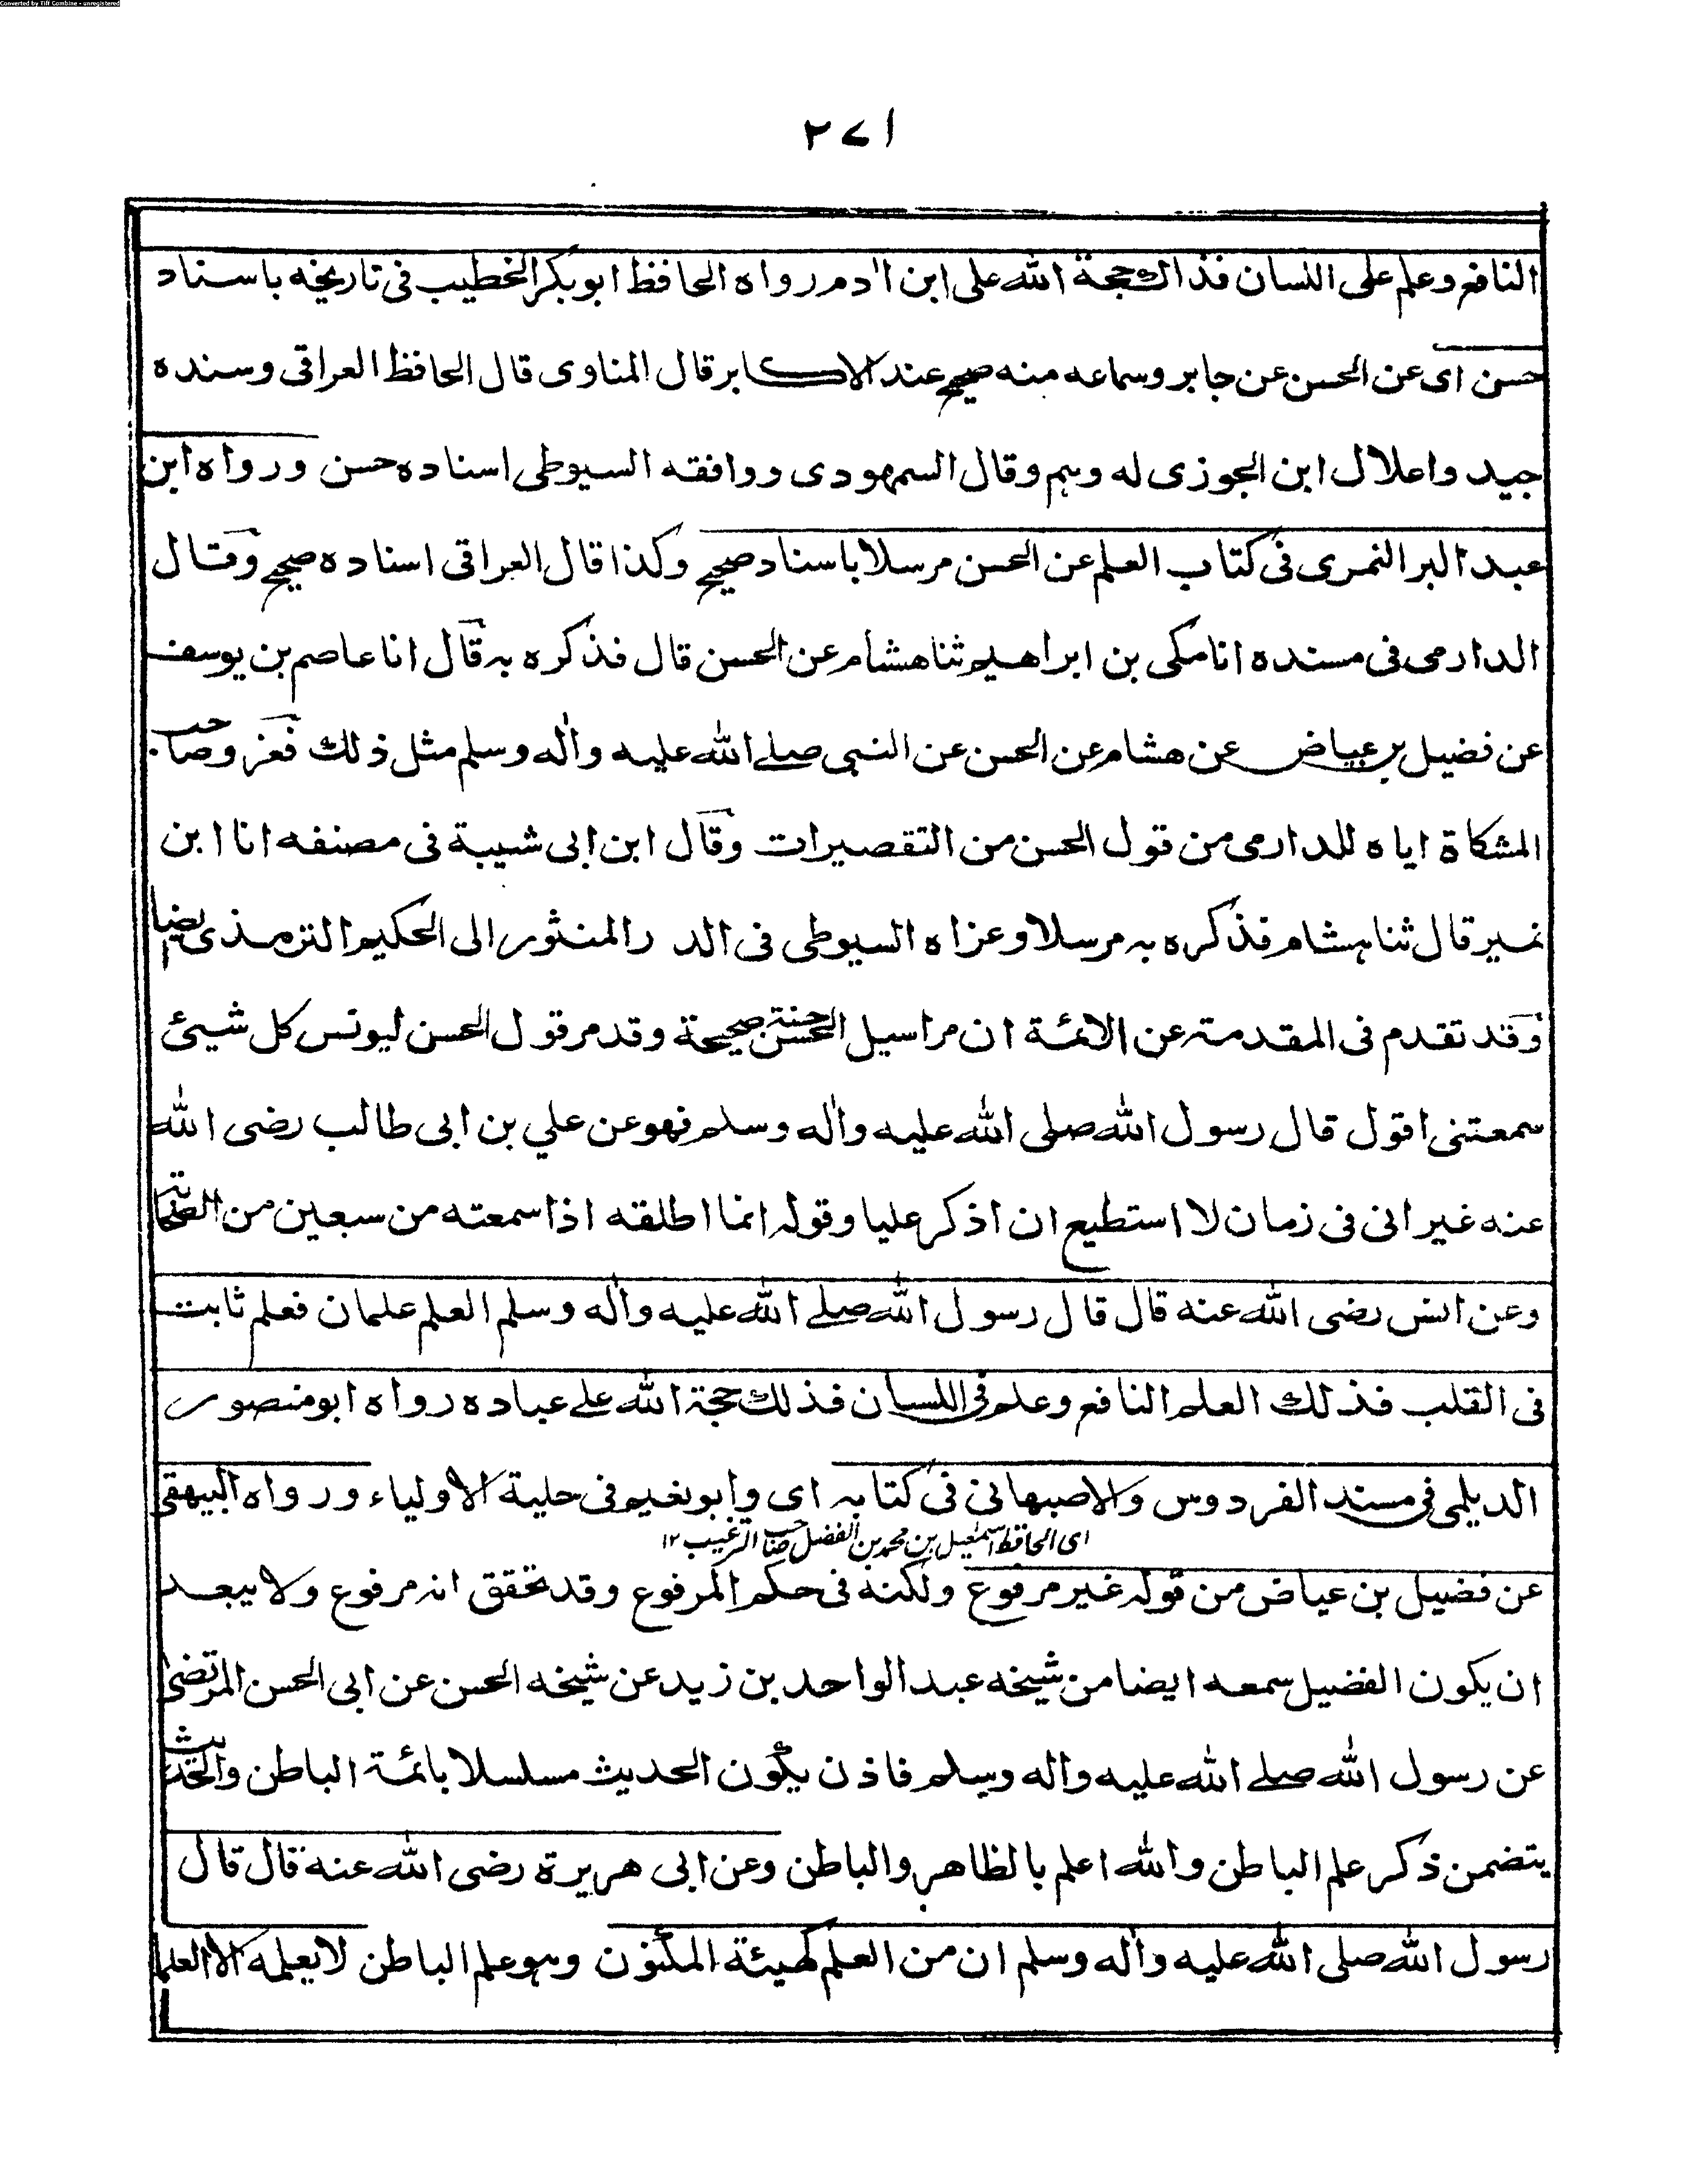 Converted by Tiff Combine - unregistered
٢٧١
النافع وعلم على اللسان فذالك حجة الله على ابن اٰدم رواه الحافظ ابوبكر الخطيب فى تاريخه باسناد
حسن اى عن الحسن عن جابر وسماعه منه صحيح عند الاكابر قال المناوى قال الحافظ العراقى وسنده
جيد واعلال ابن الجوزى له وہم وقال السمهودى ووافقه السيوطى اسناده حسن ورواه ابن
عبد البر النمرى فى كتاب العلم عن الحسن مرسلا باسناد صحيح وكذا قال العراقى اسناده صحيح وقال
الدارمى فى مسنده انا مكى بن ابراهيم ثنا هشام عن الحسن قال فذكره بہ قال انا عاصم بن يوسف
عن فضيل بن عياض عن هشام عن الحسن عن النبى صلے الله عليه واٰله وسلم مثل ذلك فعزو صاحب
المشكاة اياه للدارمى من قول الحسن من التقصيرات وقال ابن ابى شيبة فى مصنفه انا ابن
نمير قال ثنا ہشام فذكره بہ مرسلا وعزاه السيوطى فى الدر المنثور الى الحكيم الترمذى ايضا
وقد تقدم فى المقدمة عن الائمة ان مراسيل الحسن حسنة صحيحة وقد مر قول الحسن ليونس كل شيئ
سمعتنى اقول قال رسول الله صلى الله عليه واٰله وسلم فهو عن علي بن ابى طالب رضى الله
عنه غير انى فى زمان لا استطيع ان اذكر عليا وقولہ انما اطلقه اذا سمعته من سبعين من الصحابة
وعن انس رضى الله عنه قال قال رسول الله صلے الله عليه واٰله وسلم العلم علمان فعلم ثابت
فى القلب فذلك العلم النافع وعلم فى اللسان فذلك حجة الله علے عباده رواه ابو منصور
الديلمى فى مسند الفردوس والاصبهانى فى كتابہ اى وابو نعيم فى حلية الاولياء ورواه البيهقى
اى الحافظ اسمٰعيل بن محمد بن الفضل صاحب الترغيب ١٢
عن فضيل بن عياض من قولہ غير مرفوع ولكنه فى حكم المرفوع وقد تحقق انہ مرفوع ولا يبعد
ان يكون الفضيل سمعه ايضا من شيخه عبد الواحد بن زيد عن شيخه الحسن عن ابى الحسن المرتضى
عن رسول الله صلے الله عليه واٰله وسلم فاذن يكون الحديث مسلسلا بائمة الباطن والحديث
يتضمن ذكر علم الباطن والله اعلم بالظاهر والباطن وعن ابى هريرة رضى الله عنه قال قال
رسول الله صلى الله عليه واٰله وسلم ان من العلم كهيئة المكنون وہو علم الباطن لا يعلمه الا العلما